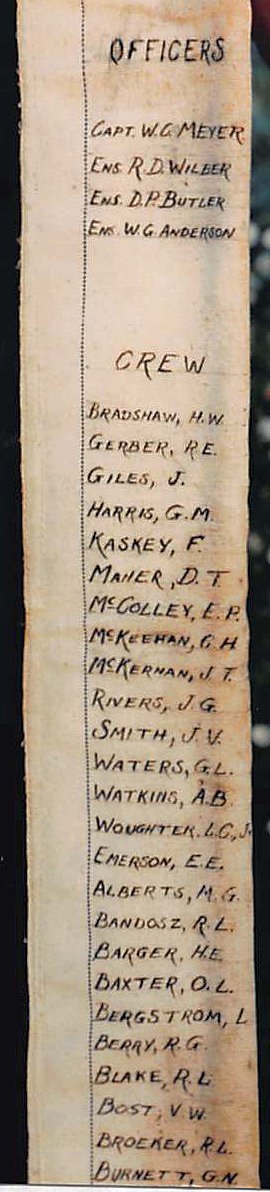 OFFICERS
CAPT. W.C. MEYER
ENS. R.D. WILBER
ENS. D.P. BUTLER
ENS. W.G. ANDERSON
CREW
BRADSHAW, H.W.
GERBER, R.E.
GILES, J.
HARRIS, G.M.
KASKEY, F.
MAHER, D.T.
McCOLLEY, E.P.
McKEEHAN, C.H.
McKERNAN, J.T.
RIVERS, J.G.
SMITH, J.V.
WATERS, G.L.
WATKINS, A.B.
WOUGHTER, L.C., J.
EMERSON, E.E.
ALBERTS, M.G.
BANDOSZ, R.L.
BARGER, H.E.
BAXTER, O.L.
BERGSTROM, L
BERRY, R.G.
BLAKE, R.L.
BOST, V.W.
BROEKER, R.L.
BURNETT, G.N.